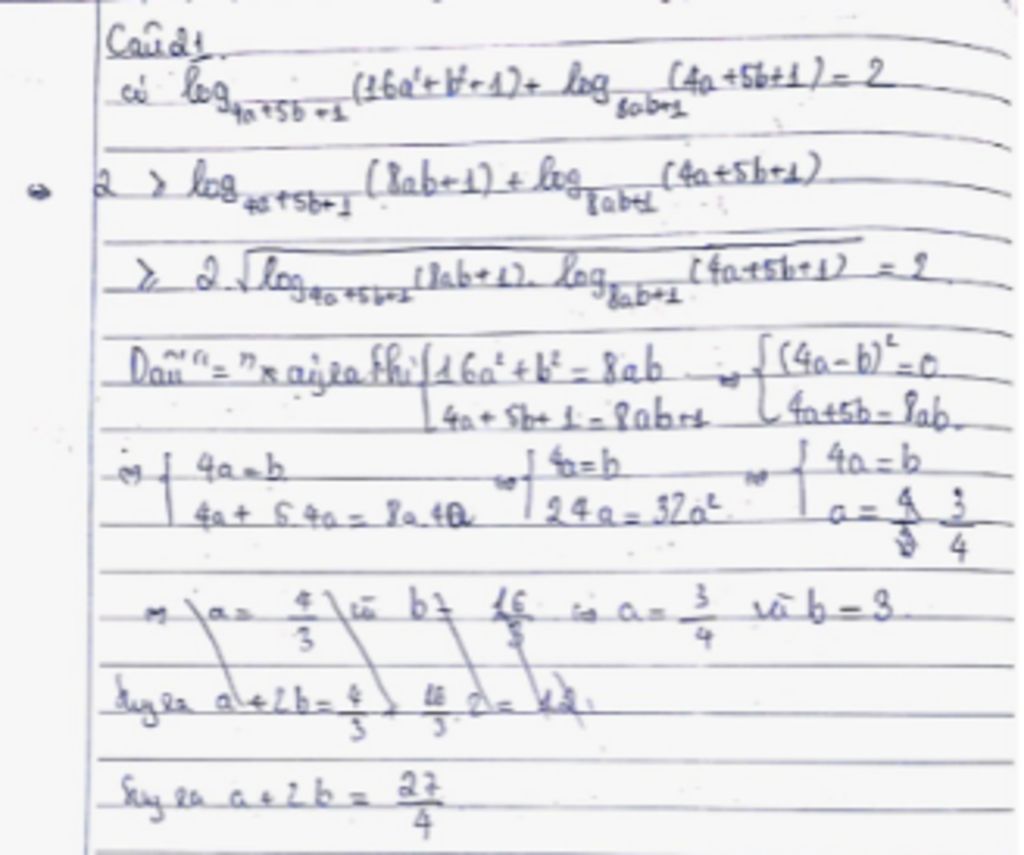 Câu 21.
có log_{4a+5b+1} (16a²+b²+1) + log_{8ab+1} (4a+5b+1) = 2
⇔ 2 ≥ log_{4a+5b+1} (8ab+1) + log_{8ab+1} (4a+5b+1)
≥ 2.√(log_{4a+5b+1} (8ab+1). log_{8ab+1} (4a+5b+1)) = 2
Dấu "=" xảy ra khi { 16a² + b² = 8ab ; 4a + 5b + 1 = 8ab+1 ⇔ { (4a-b)² = 0 ; 4a+5b = 8ab.
⇔ { 4a = b ; 4a + 5.4a = 8a.4a ⇔ { 4a = b ; 24a = 32a² ⇔ { 4a = b ; a = 3/4
⇔ a = 4/3 và b = 16/3 ⇔ a = 3/4 và b = 3.
Suy ra a + 2b = 4/3 + 16/3 . 2 = 12.
Suy ra a + 2b = 27/4